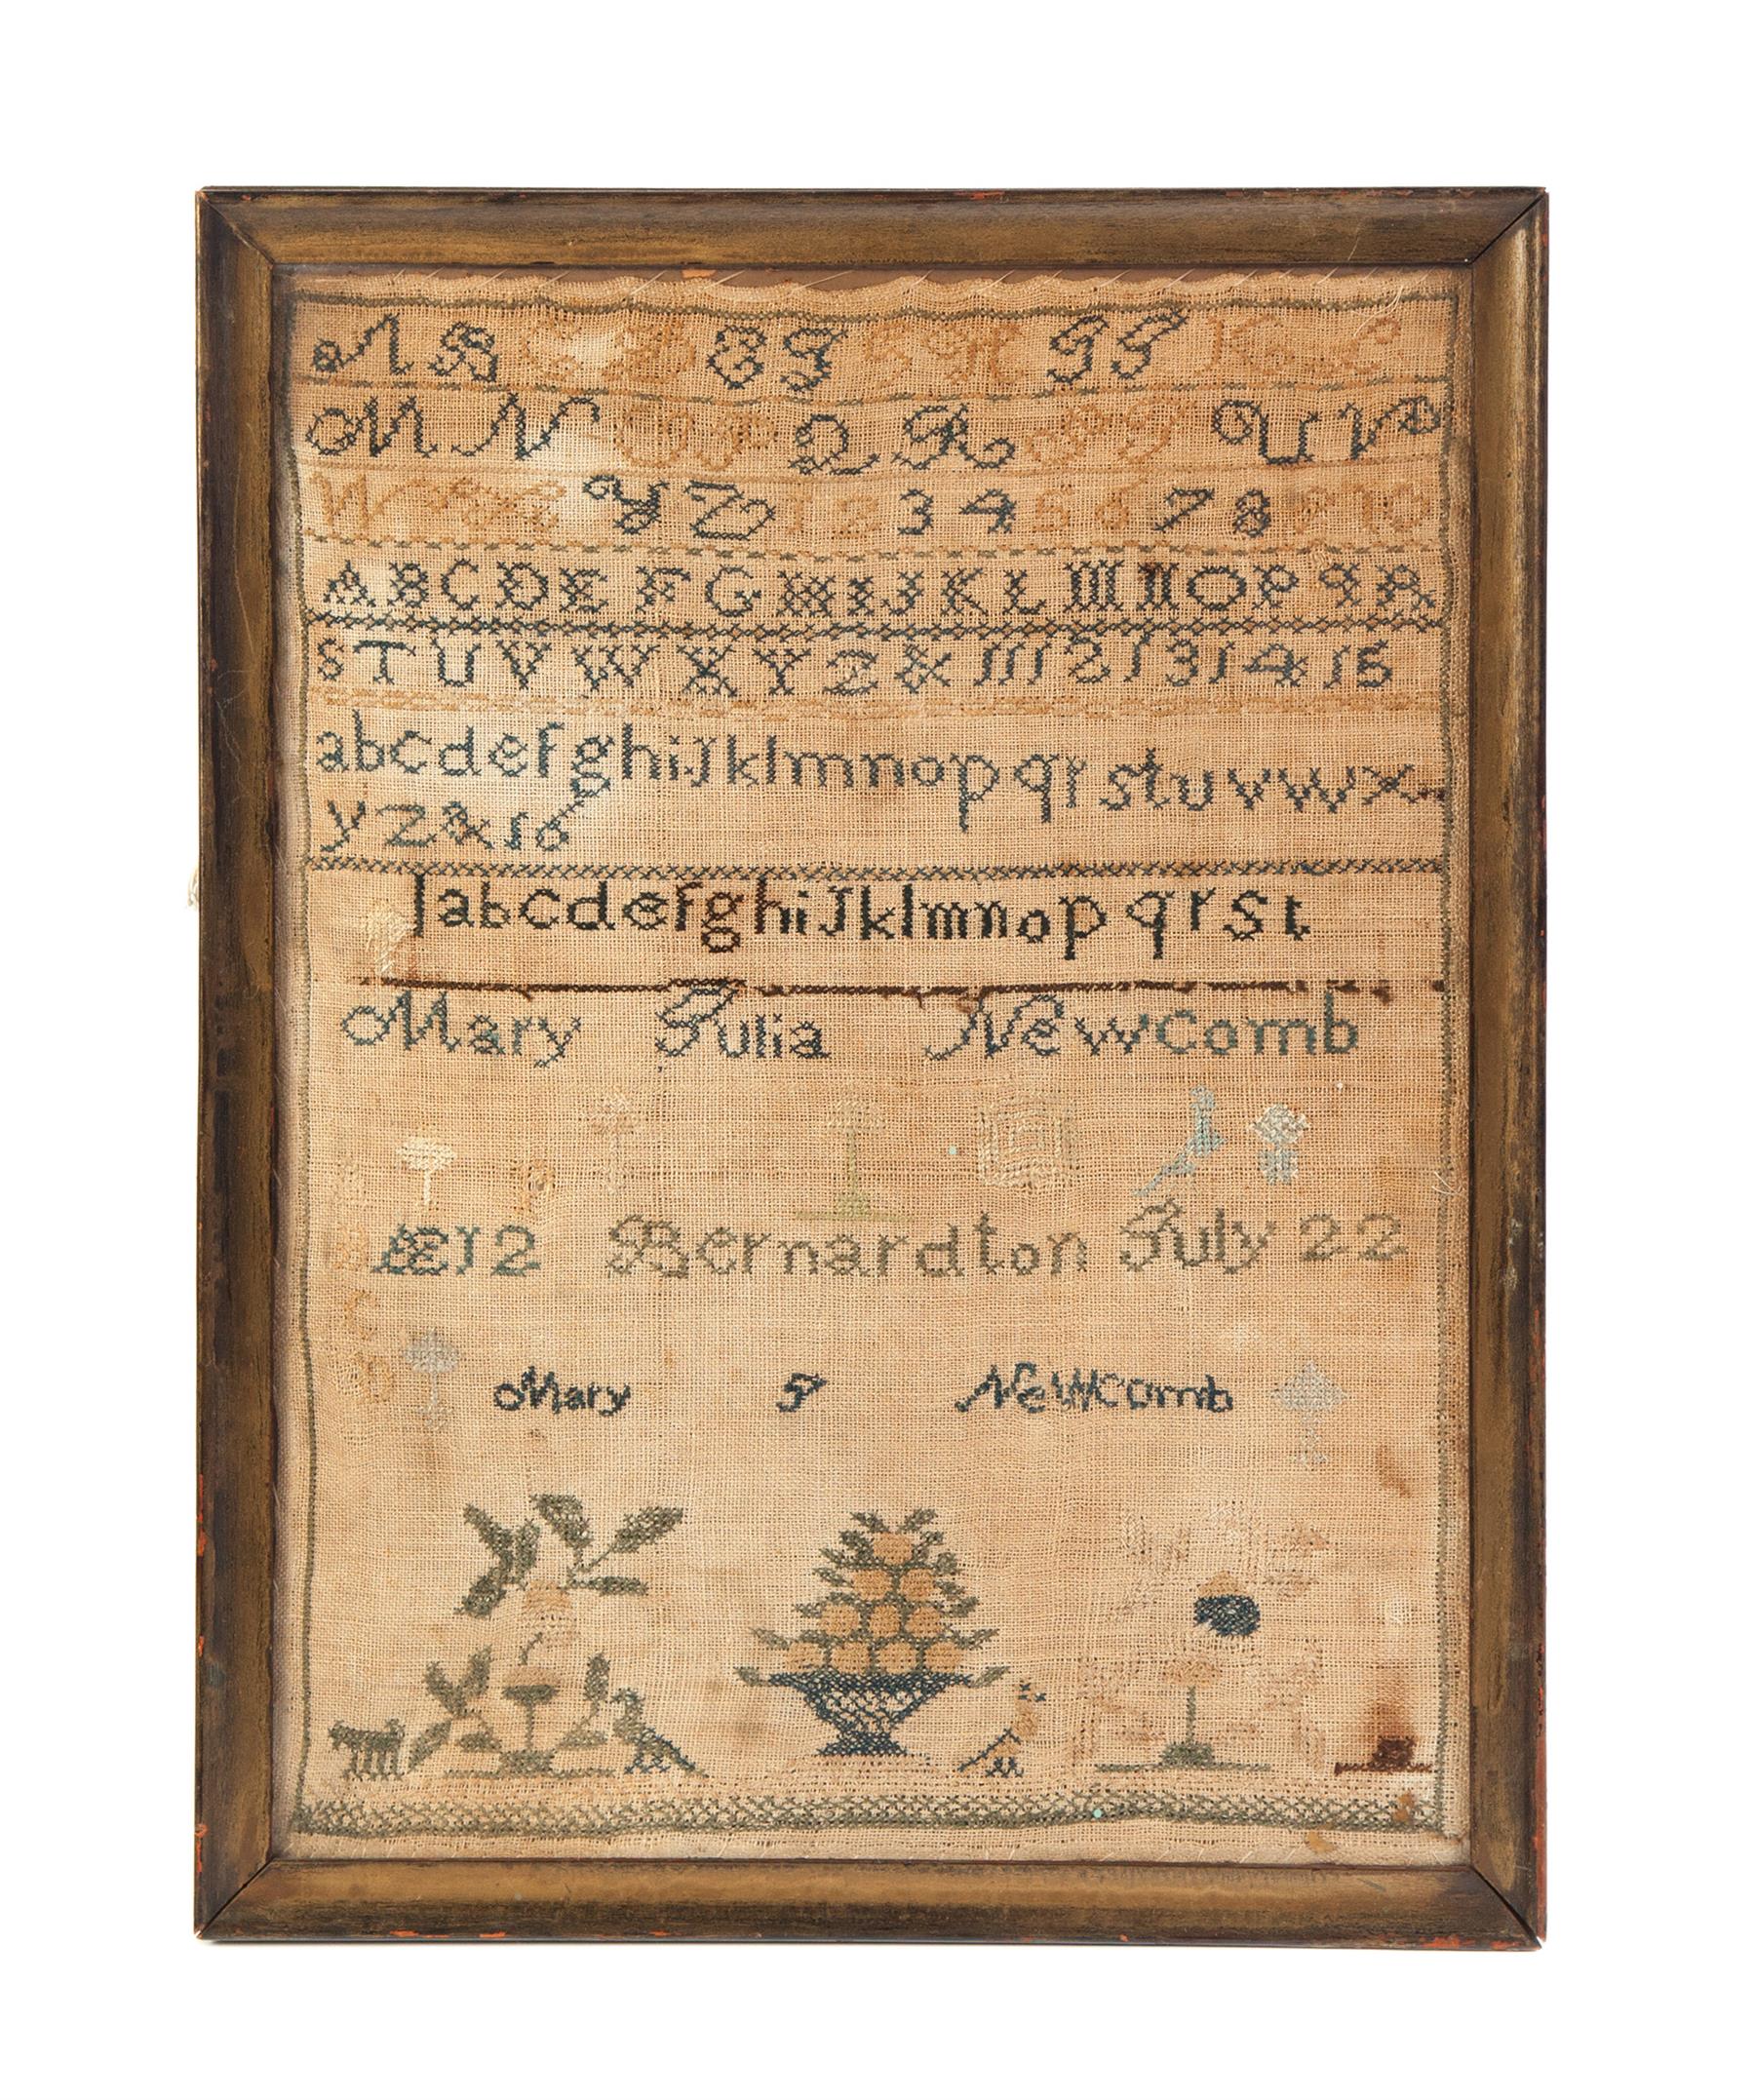 A B C D E F G H I J K L
M N O P Q R S T U V
W X Y Z 1 2 3 4 5 6 7 8 9 10
ABCDEFGHIJKLMNOPqR
STUVWXYZ&1112131415
abcdefghijklmnopqrstuvwx
yz&16
abcdefghijklmnopqrst
Mary Julia Newcomb
Æ12 Bernardton July 22
Mary J NeWComb